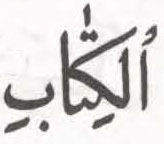 ٱلْكِتَٰابِ